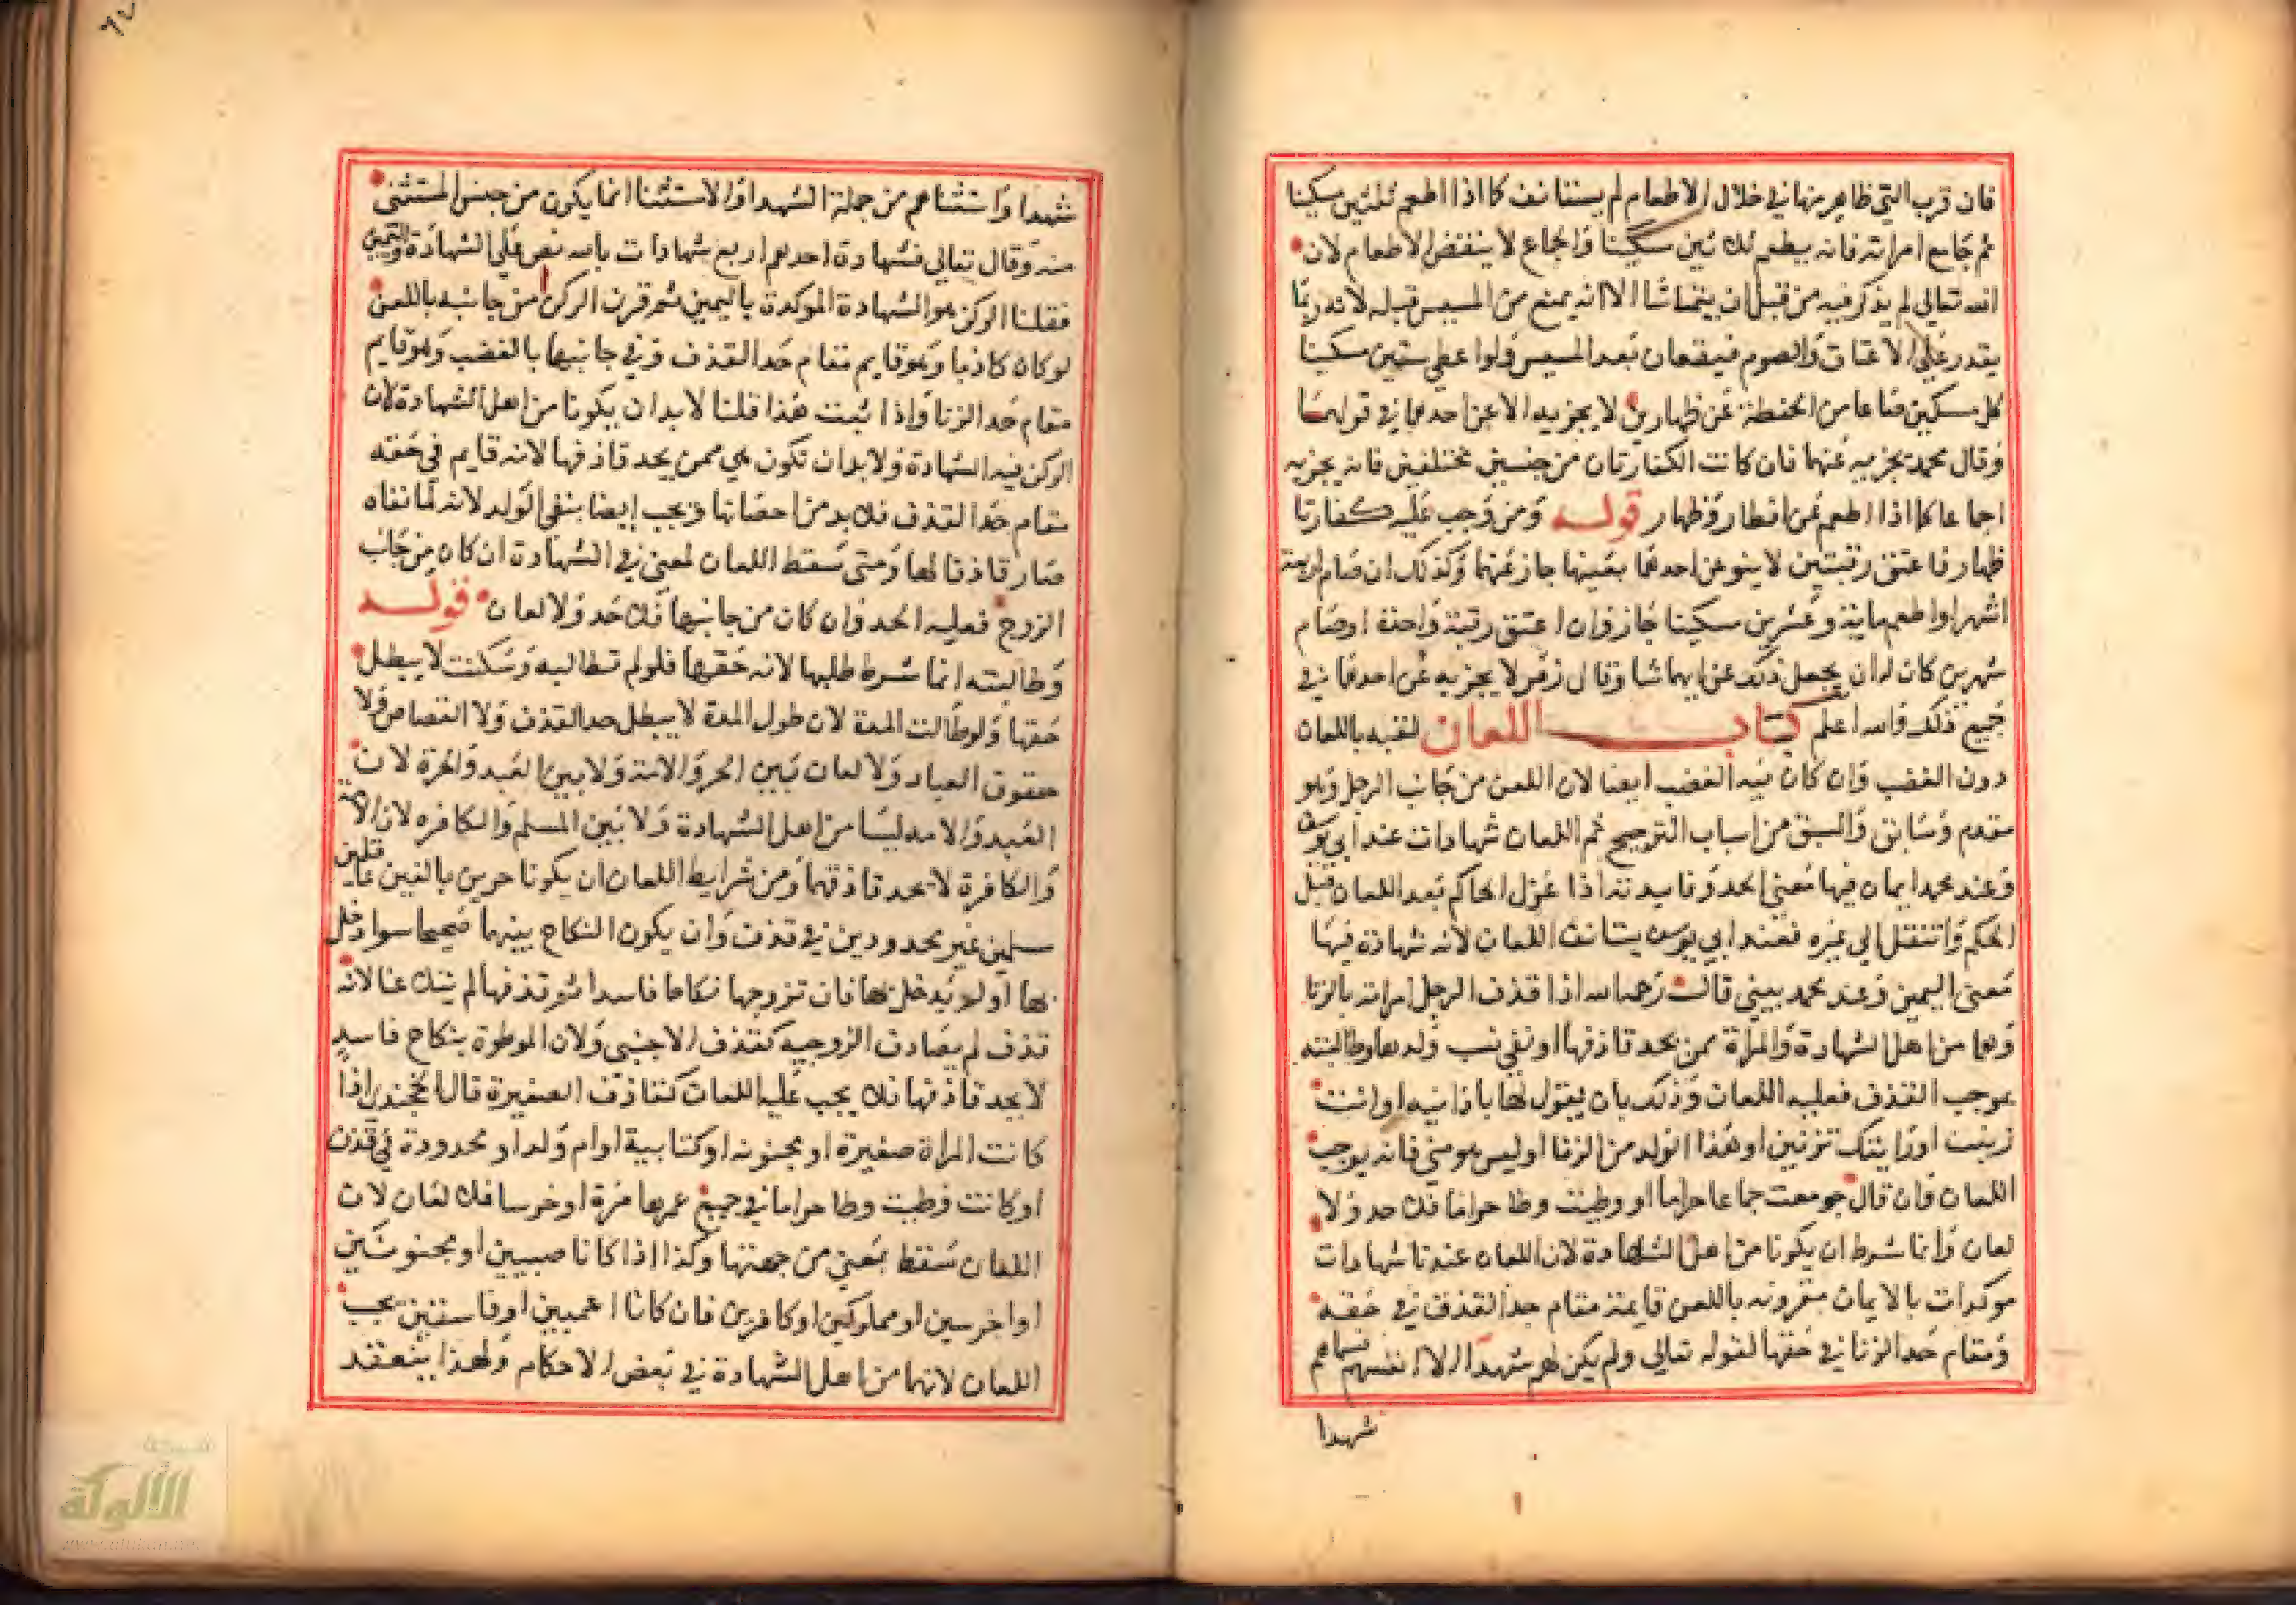 فان قرب التي ظاهر منها في خلال الاطعام لم يستانف كما اذا اطعم ثلثين مسكينا
ثم جامع امراته فانه يطعم ثلاثين مسكينا والجماع لا ينقض الاطعام لان
الله تعالى لم يذكر فيه من قبل ان يتماسا الا انه يمنع من المسيس قبله لانه ربما
يقدر على الاعتاق والصوم فيقعان بعد المسيس ولو اعطي ستين مسكينا
كل مسكين صاعا من الحنطة عن ظهارين لا يجزيه الا عن احدهما في قولهما
وقال محمد يجزيه عنهما فان كانت الكفارتان من جنسين مختلفين فانه يجزيه
اجماعا كما اذا اطعم عن افطار وظهار قوله ومن وجب عليه كفارتا
ظهار فاعتق رقبتين لا ينوعن احدهما بعينها جاز عنهما وكذلك ان صام اربعة
اشهر او اطعم ماية وعشرين مسكينا جاز وان اعتق رقبة واحدة او صام
شهرين كان له ان يجعل ذلك عن ايهما شا وقال زفر لا يجزيه عن احدهما في
جميع ذلك والله اعلم كتاب اللعان لقبه باللعان
دون الغضب وان كان فيه الغضب ايضا لان اللعن من جانب الرجل وهو
مقدم وسابق والسبق من اسباب الترجيح ثم اللعان شهادات عند ابي يوسف
وعند محمد ايمان فيها معنى الحد وفايدته اذا عزل الحاكم بعد اللعان قبل
الحكم وانتقل الى غيره فعند ابي يوسف يستانف اللعان لانه شهادة فيها
معنى اليمين وعند محمد يبني قال رحمه الله اذا قذف الرجل امراته بالزنا
وهما من اهل الشهادة والمراة ممن يحد قاذفها او نفي نسب ولدها وطالبته
بموجب القذف فعليه اللعان وذلك بان يقول لها يا زانيه او انت
زنيت او رايتك تزنين او هذا الولد من الزنا او ليس هو مني فانه يوجب
اللعان وان قال جومعت جماعا حراما او وطيت وطا حراما فلا حد ولا
لعان وانما شرط ان يكونا من اهل الشهادة لان اللعان عندنا شهادات
موكدات بالايمان مقرونه باللعن قايمة مقام حد القذف في حقه
ومقام حد الزنا في حقها لقوله تعالى ولم يكن لهم شهدا الا انفسهم سماهم
شهدا
شهدا واستثناهم من جملة الشهدا والاستثنا انما يكون من جنس المستثنى
منه وقال تعالى فشهادة احدهم اربع شهادات بالله نص على الشهادة واليمين
فقلنا الركن هو الشهادة الموكدة باليمين ثم قرن الركن من جانبه باللعن
لو كان كاذبا وهو قايم مقام حد القذف وفي جانبها بالغضب وهو قايم
مقام حد الزنا واذا ثبت هذا قلنا لا بد ان يكونا من اهل الشهادة لان
الركن فيه الشهادة ولا بد ان تكون هي ممن يحد قاذفها لانه قايم في حقه
مقام حد القذف فلا بد من احصانها ويجب ايضا بنفي الولد لانه لما نفاه
صار قاذفا لها ومتى سقط اللعان لمعنى في الشهادة ان كان من جانب
الزوج فعليه الحد وان كان من جانبها فلا حد ولا لعان قوله
وطالبته انما شرط طلبها لانه حقها فلو لم تطالبه وسكتت لا يبطل
حقها ولو طالت المدة لان طول المدة لا يبطل حد القذف ولا القصاص ولا
حقوق العباد ولا لعان بين الحر والامة ولا بين العبد والحرة لان
العبد والامه ليسا من اهل الشهادة ولا بين المسلم والكافره لان الامة
والكافرة لا يحد قاذفهما ومن شرايط اللعان ان يكونا حرين بالغين عاقلين
مسلمين غير محدودين في قذف وان يكون النكاح بينهما صحيحا سوا دخل
بها او لم يدخل بها فان تزوجها نكاحا فاسدا ثم قذفها لم يتلاعنا لانه
قذف لم يصادف الزوجيه كقذف الاجنبي ولان الموطوة بنكاح فاسد
لا يحد قاذفها فلا يجب عليه اللعان كقاذف الصغيرة قال الخجندي اذا
كانت المراة صغيرة او مجنونه او كتابية او ام ولد او محدودة في قذف
او كانت وطيت وطا حراما في جميع عمرها مرة او خرسا فلا لعان لان
اللعان سقط بمعنى من جهتها وكذا اذا كانا صبيين او مجنونين
او اخرسين او مملوكين او كافرين فان كانا اعميين او فاسقين يجب
اللعان لانهما من اهل الشهادة في بعض الاحكام ولهذا ينعقد
شبكة
الألوكة
www.alukah.net